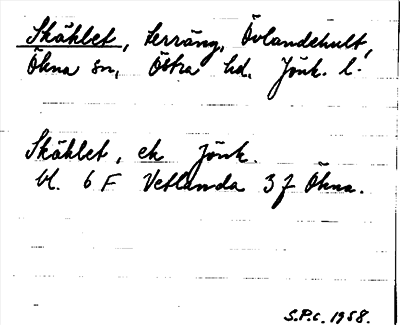 Skäklet, terräng, Övlandehult,
Ökna sn, Östra hd, Jönk. l.
Skäklet, ek Jönk.
bl. 6 F Vetlanda 3 f Ökna.
S.P.C. 1958.